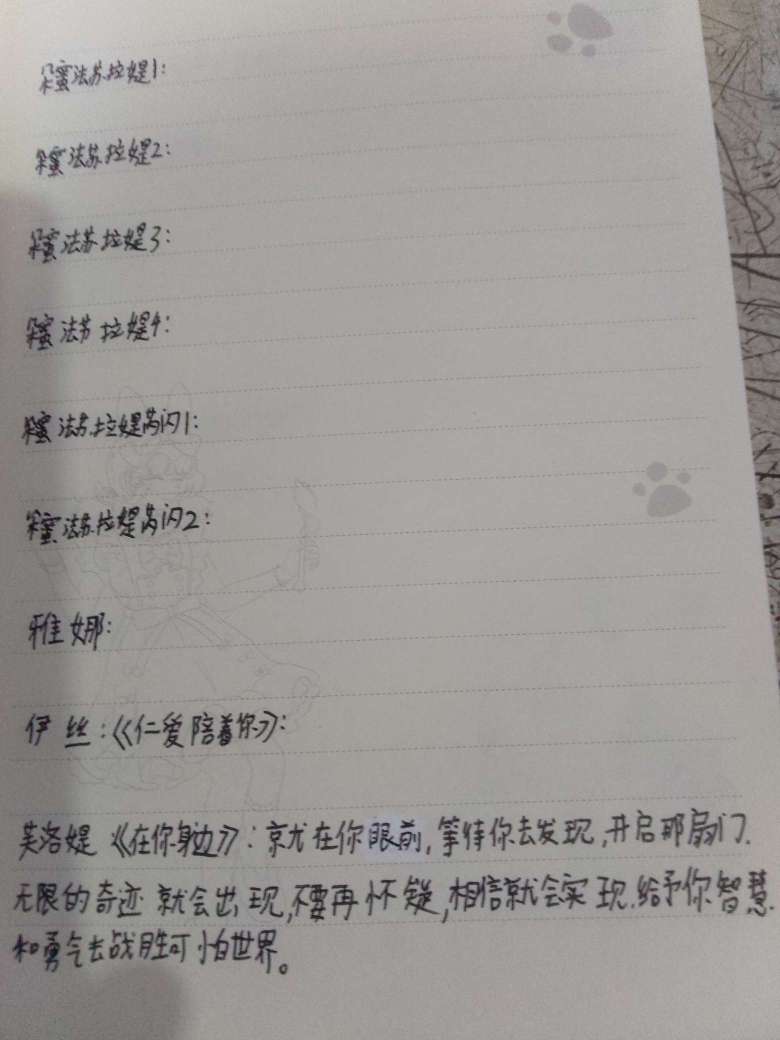 朵蜜法苏拉媞1:
朵蜜法苏拉媞2:
朵蜜法苏拉媞3:
朵蜜法苏拉媞4:
朵蜜法苏拉媞芮闪1:
朵蜜法苏拉媞芮闪2:
雅娜:
伊丝:《仁爱陪着你》:
芙洛媞《在你身边》:就在你眼前,等待你去发现,开启那扇门.
无限的奇迹就会出现,不要再怀疑,相信就会实现.给予你智慧.
和勇气去战胜可怕世界。